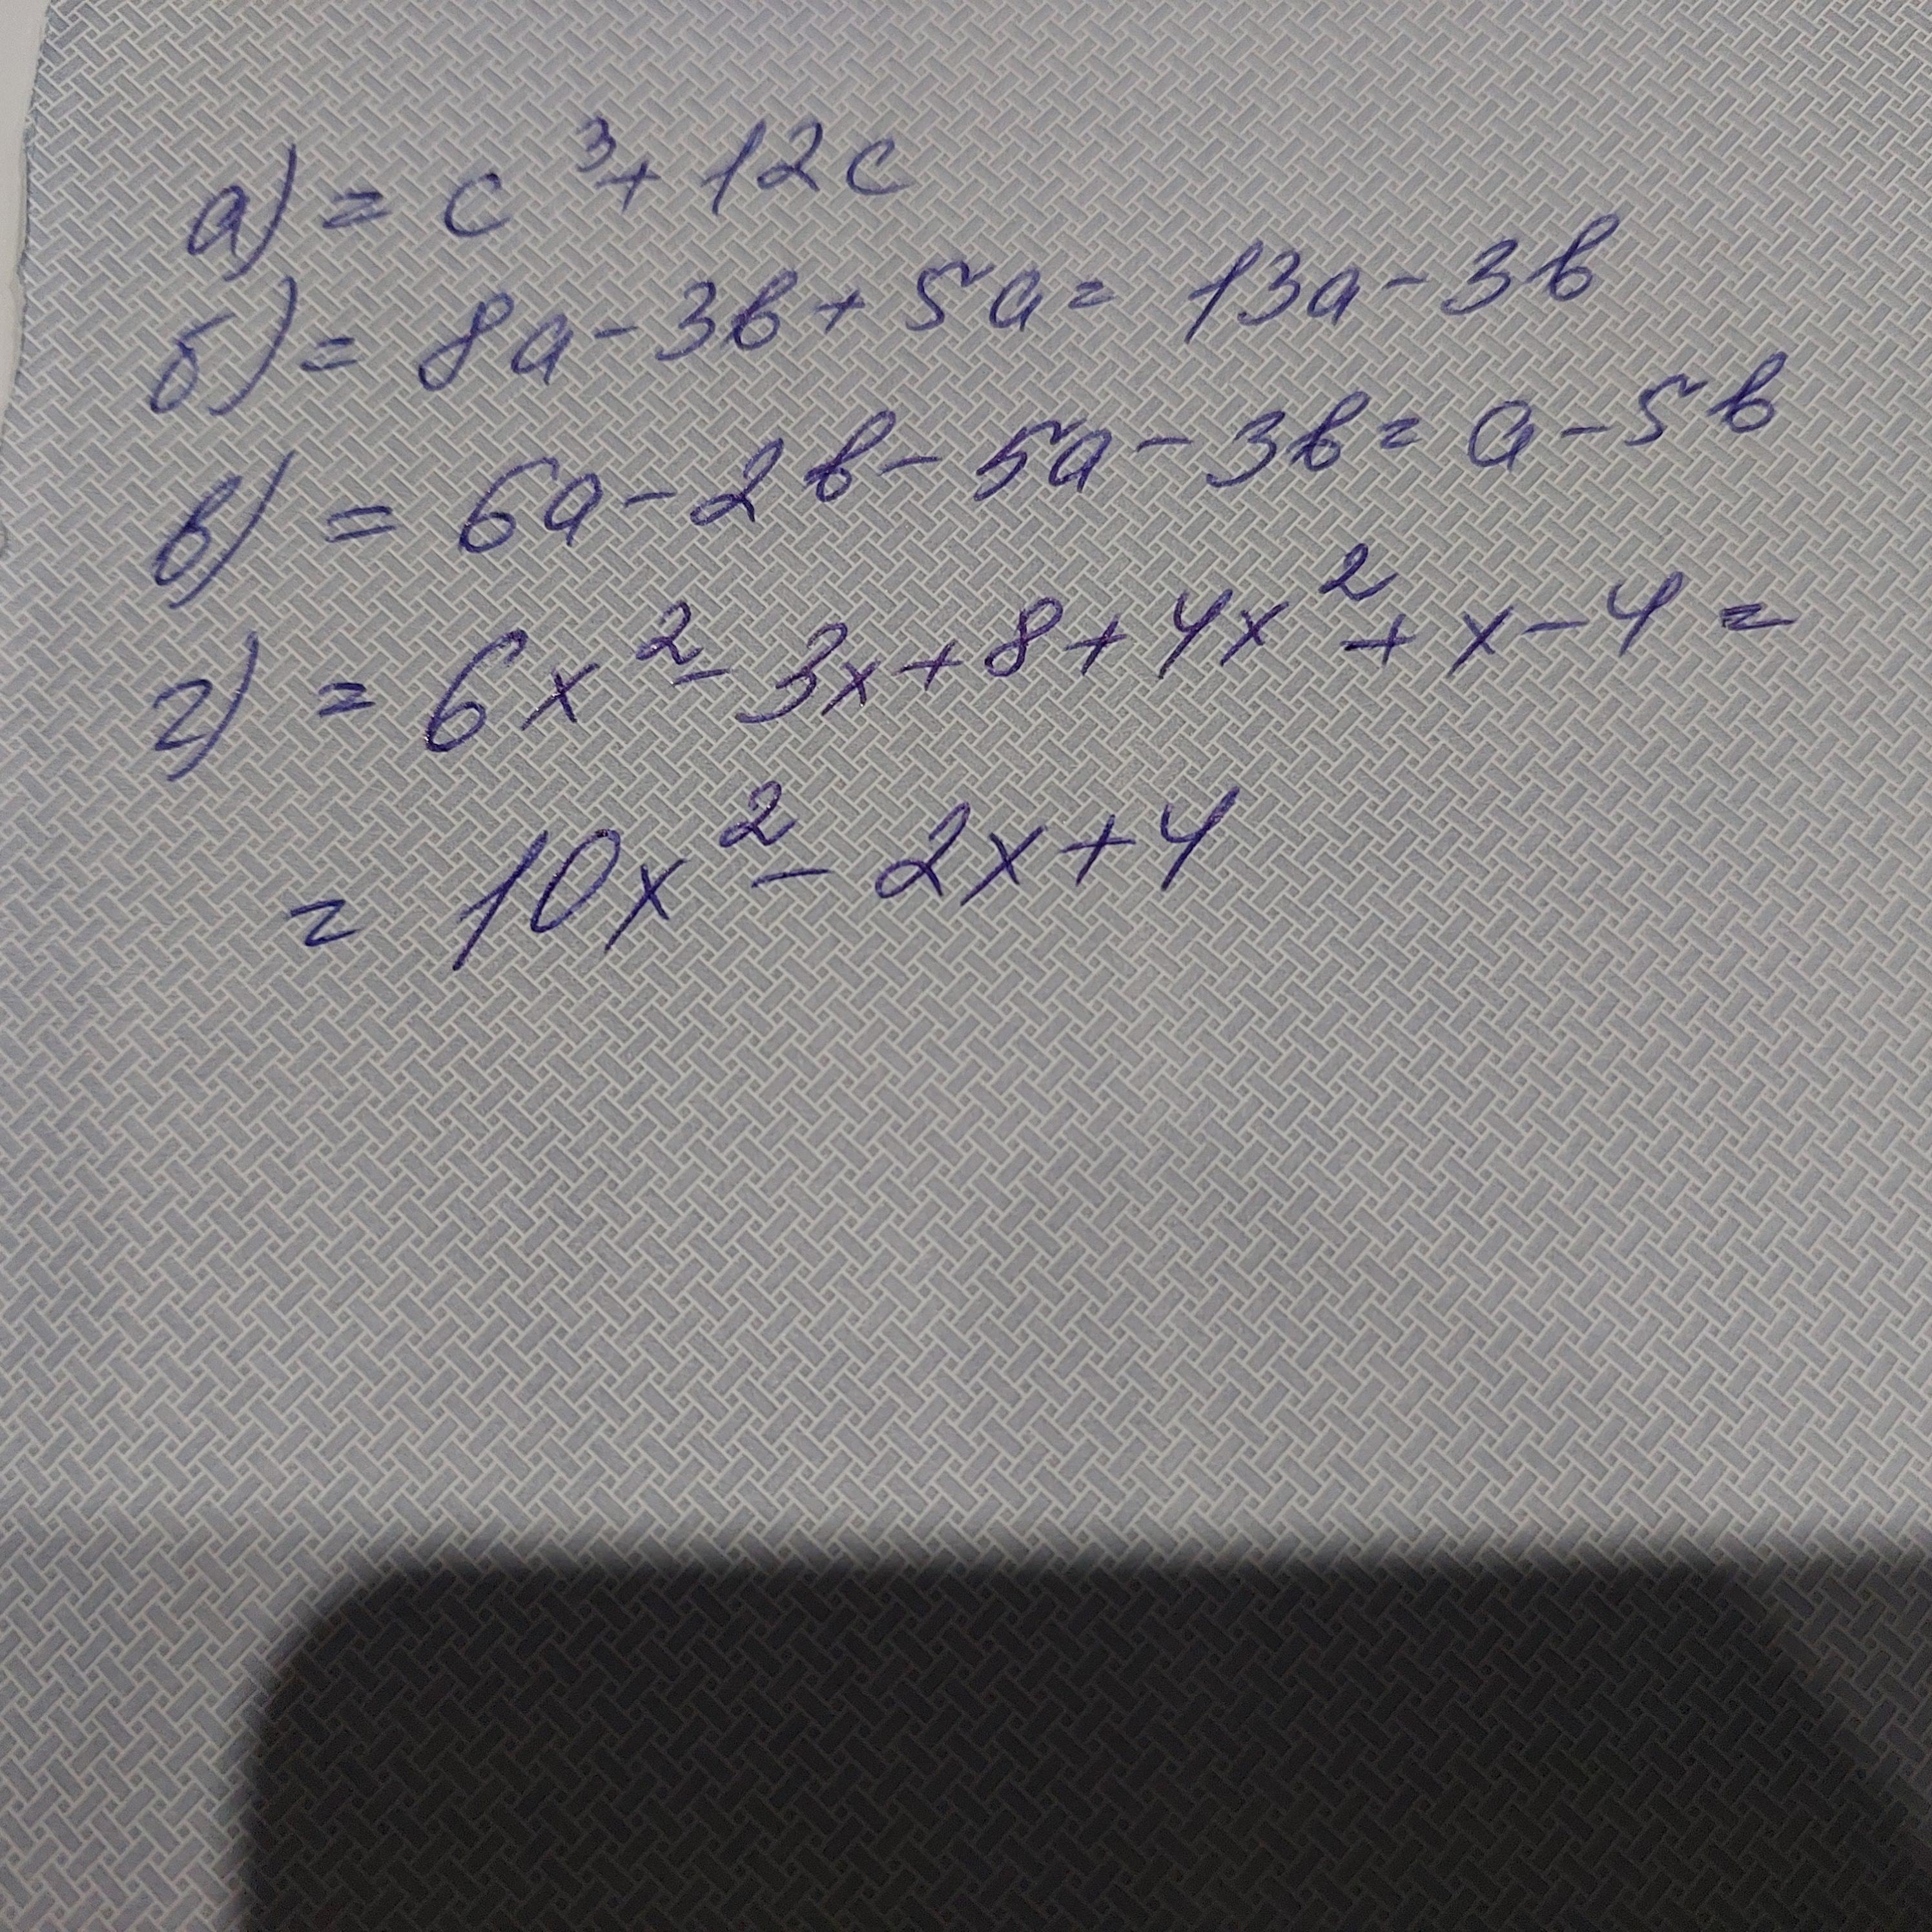 а) = c³ + 12c
б) = 8a - 3b + 5a = 13a - 3b
в) = 6a - 2b - 5a - 3b = a - 5b
г) = 6x² - 3x + 8 + 4x² + x - 4 =
= 10x² - 2x + 4